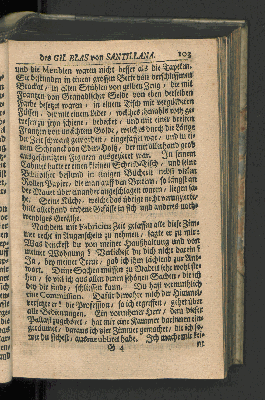 des GIL BLAS von SANTILLANA. 103
und die Meublen waren nicht besser als die Tapeten.
Sie bestunden in einem grossen Bette von verschossenem
Brocat, in alten Stühlen von gelben Zeug, die mit
Franzen von Granadischer Seide von eben derselben
Farbe besetzt waren, in einem Tisch mit vergüldeten
Füssen, der mit einem Leder, welches ehemahls roth ge-
wesen zu seyn schiene, bedecket, und mit einer breiten
Franzen von unächtem Golde, welch es durch die Länge
der Zeit schwarz geworden, eingefasset war, und in ei-
nem Schranck von Eben-Holz, der mit allerhand grob
ausgeschnitzten Figuren ausgezieret war. In seinem
Cabinet hatte er einen kleinen Schreib-Tisch, und seine
Bibliothec bestund in einigen Büchern nebst vielen
Rollen Papier, die man auf von Bretern, so längst an
der Mauer über einander angeschlagen waren, liegen sa-
he. Seine Küche, welche das übrige nicht verunzierte,
hielt allerhand irdene Gefässe in sich und anderes noth-
wendiges Geräthe.
Nachdem mir Fabricius Zeit gelassen alle diese Zim-
mer recht in Augenschein zu nehmen, sagte er zu mir:
Was denckest du von meiner Haushaltung und von
meiner Wohnung?
Ja, bey meiner Treue, gab ich ihm lächlend zur Ant-
wort. Deine Sachen müssen zu Madrid
hen, so viel ich aus allen
bey dir finde, schliessen kann. Du hast vermuthlich
eine Commission. Dafür bewahre mich der Himmel,
versetzte er: die Profession, so ich ergriffen, gehet über
alle Bedienungen. Ein vornehmer Herr, dem dieser
Pallast zugehöret, hat mir eine Kammer darinnen ein-
geräumet, daraus ich vier Zimmer gemachet, die ich so,
wie du siehest, ausmeubliret habe. Ich mache mir kei-
G 4